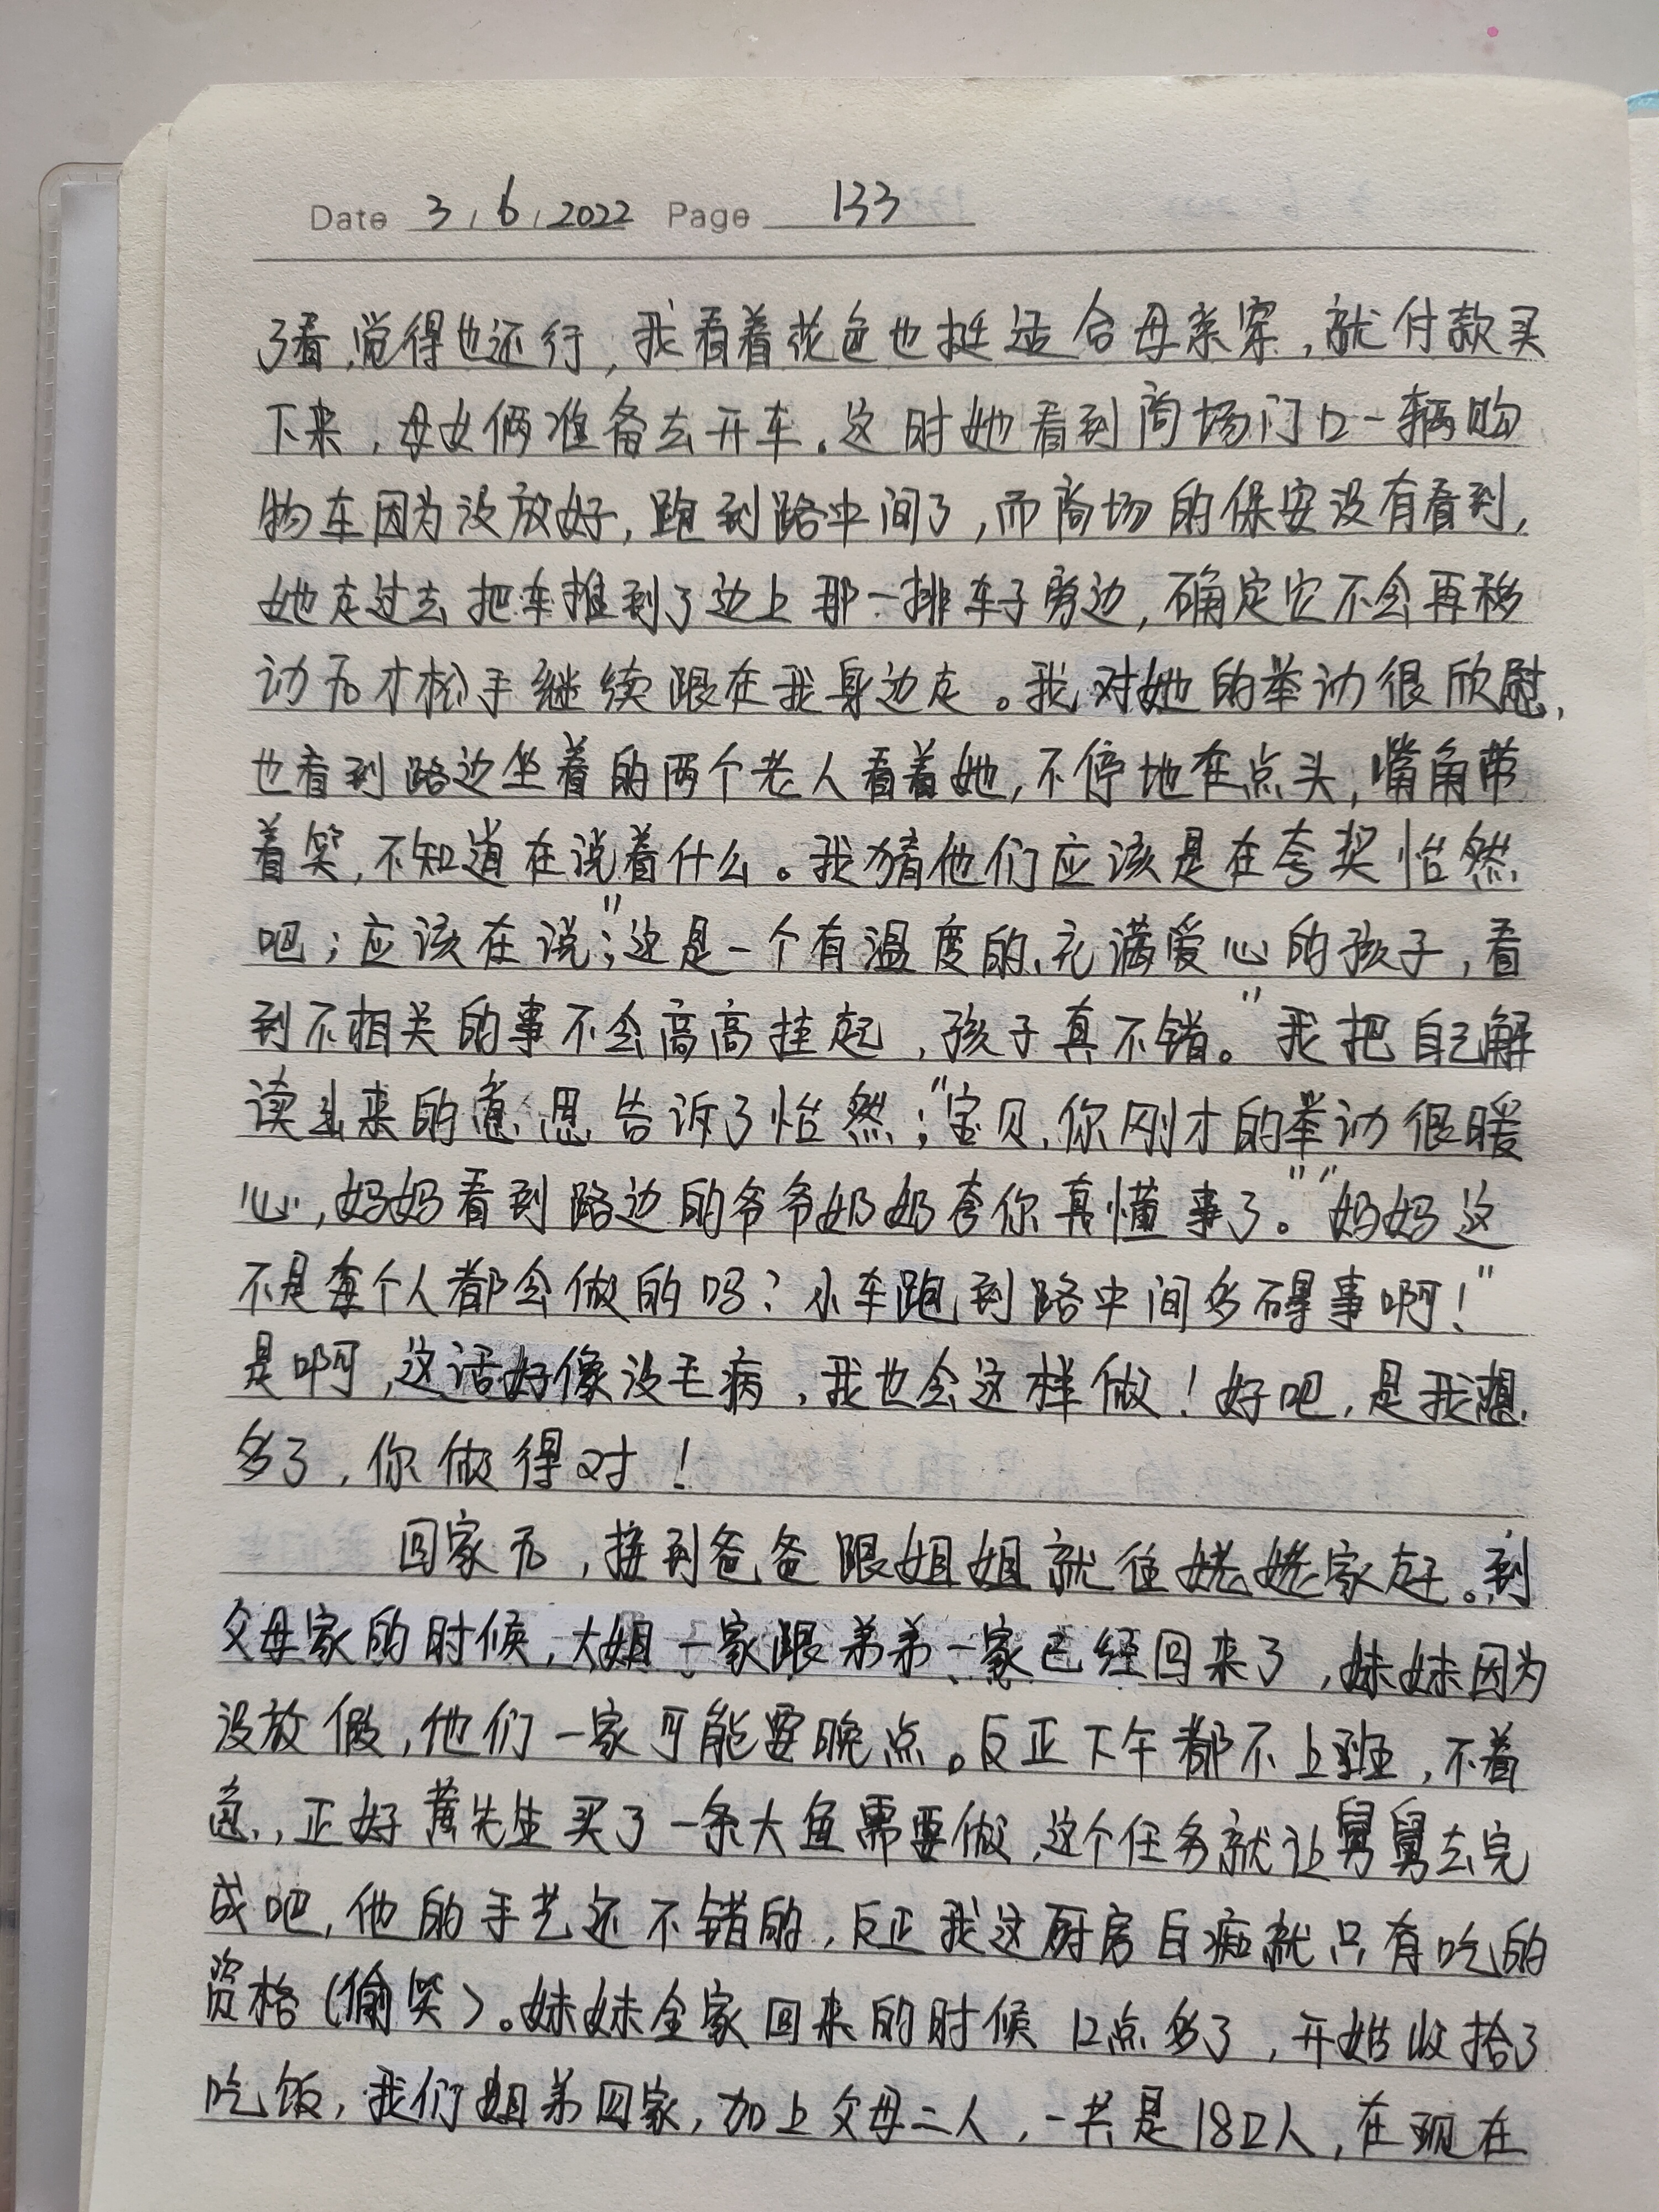 Date 3 / 6 / 2022 Page 133
了看,觉得也还行,我看着花色也挺适合母亲穿,就付款买
下来,母女俩准备去开车。这时她看到商场门口一辆购
物车因为没放好,跑到路中间了,而商场的保安没有看到,
她走过去把车推到了边上那一排车子旁边,确定它不会再移
动后才松手继续跟在我身边走。我对她的举动很欣慰,
也看到路边坐着的两个老人看着她,不停地在点头,嘴角带
着笑,不知道在说着什么。我猜他们应该是在夸奖怡然
吧;应该在说;"这是一个有温度的、充满爱心的孩子,看
到不相关的事不会高高挂起,孩子真不错。"我把自己解
读出来的意思告诉了怡然;"宝贝,你刚才的举动很暖
心,妈妈看到路边的爷爷奶奶夸你真懂事了。""妈妈这
不是每个人都会做的吗?小车跑到路中间多碍事啊!"
是啊,这话好像没毛病,我也会这样做!好吧,是我想
多了,你做得对!
回家后,接到爸爸跟姐姐就往姥姥家赶。到
父母家的时候,大姐一家跟弟弟一家已经回来了,妹妹因为
没放假,他们一家可能要晚点。反正下午都不上班,不着
急,正好黄先生买了一条大鱼需要做,这个任务就让舅舅去完
成吧,他的手艺还不错的,反正我这厨房白痴就只有吃的
资格(偷笑)。妹妹全家回来的时候12点多了,开始收拾了
吃饭,我们姐弟四家,加上父母二人,一共是18口人,在现在